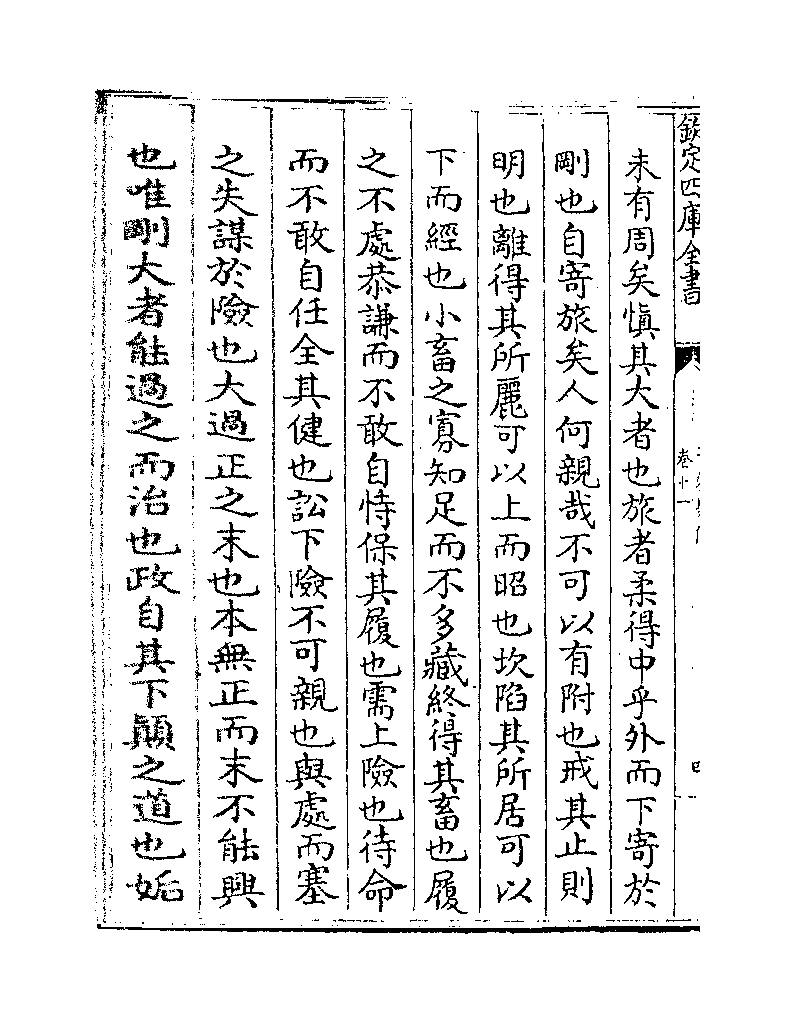 欽定四庫全書
卷十一
未有周矣慎其大者也旅者柔得中乎外而下寄於
剛也自寄旅矣人何親哉不可以有附也戒其止則
明也離得其所麗可以上而昭也坎陷其所居可以
下而經也小畜之寡知足而不多藏終得其畜也履
之不處恭謙而不敢自恃保其履也需上險也待命
而不敢自任全其健也訟下險不可親也與處而塞
之失謀於險也大過正之末也本無正而末不能興
也唯剛大者能過之而治也政自其下顛之道也姤